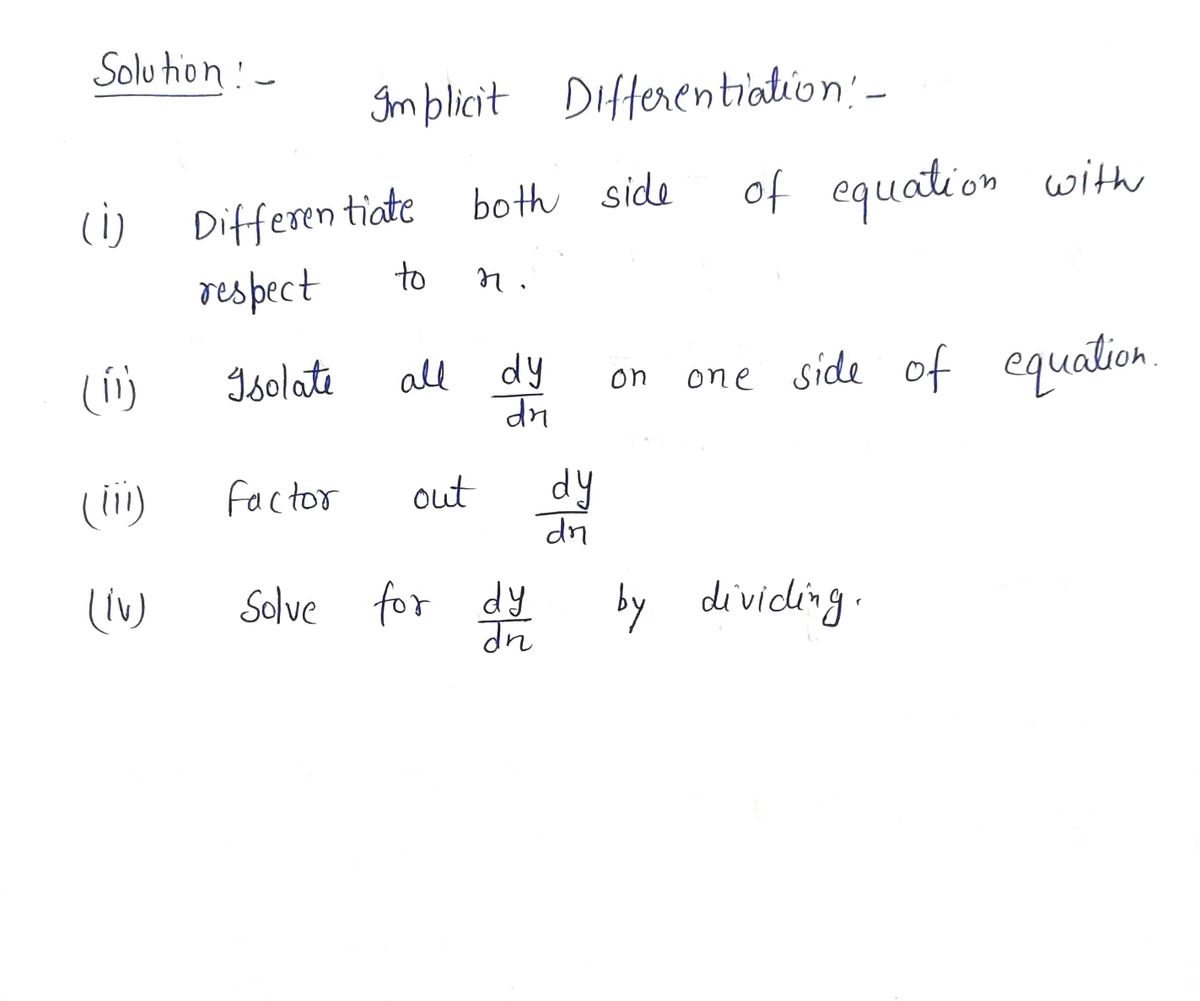 Solution :-
Implicit Differentiation :-
(i) Differentiate both side of equation with
respect to x.
(ii) Isolate all dy/dx on one side of equation.
(iii) Factor out dy/dx
(iv) Solve for dy/dx by dividing.